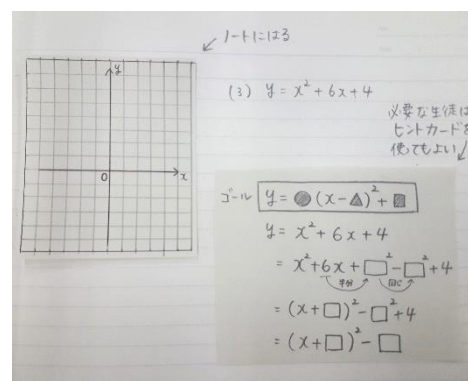 ノートにはる
y
O
x
(3) y = x² + 6x + 4
必要な生徒は
ヒントカードを
使ってもよい
ゴール y = ●(x-▲)² + ■
y = x² + 6x + 4
= x² + 6x + □² - □² + 4
半分 同じ
= (x + □)² - □² + 4
= (x + □)² - □